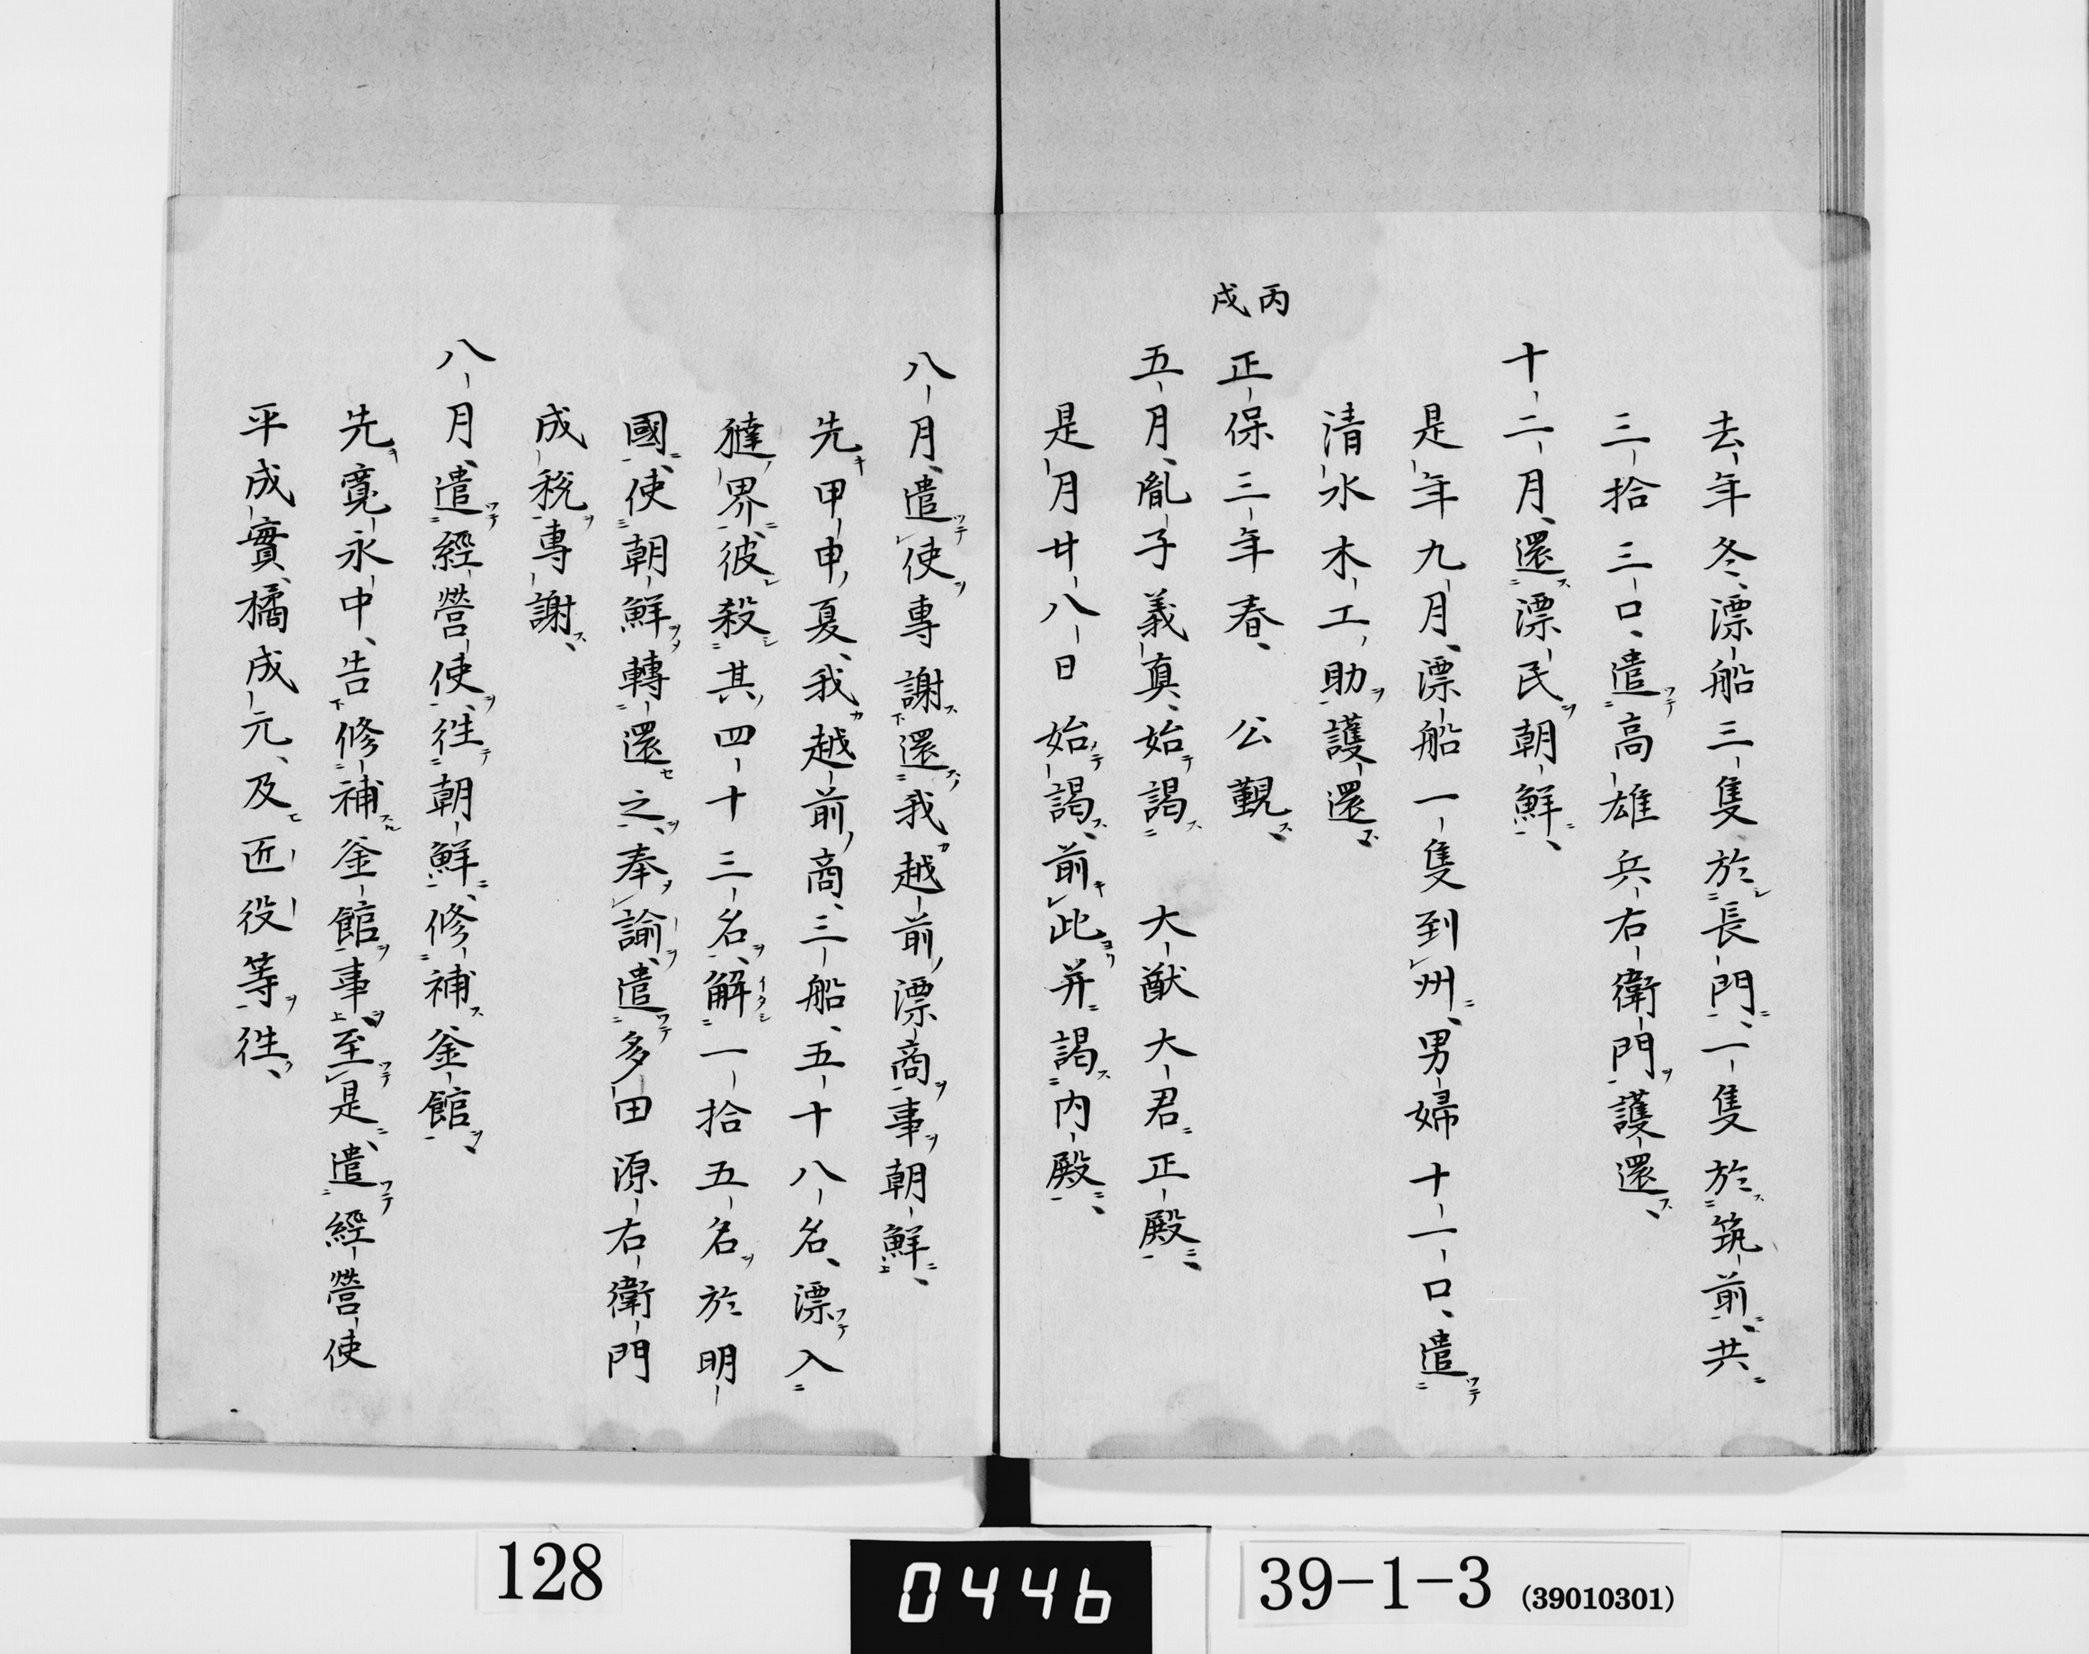 去年冬、漂船三隻、於長門、一隻於筑前、共
三拾三口、遣高雄兵右衛門護還、
十二月、還漂民朝鮮、
是年九月、漂船一隻到州、男婦十一口、遣
清水木工、助護還、
丙戌
正保三年春、公覲、
五月、胤子義真、始謁大猷大君正殿、
是月廿八日始謁、前此并謁内殿、
八月、遣使専謝還我越前漂商事朝鮮、
先甲申夏、我越前商、三船、五十八名、漂入
韃界、彼殺其四十三名、解一拾五名於明
國、使朝鮮轉還之、奉諭、遣多田源右衛門
成稅專謝、
八月、遣經營使、徃朝鮮、修補釜館、
先寛永中、告修補釜館事、至是、遣經營使
平成實、橘成元、及匠役等徃、
128
0446
39-1-3 (39010301)